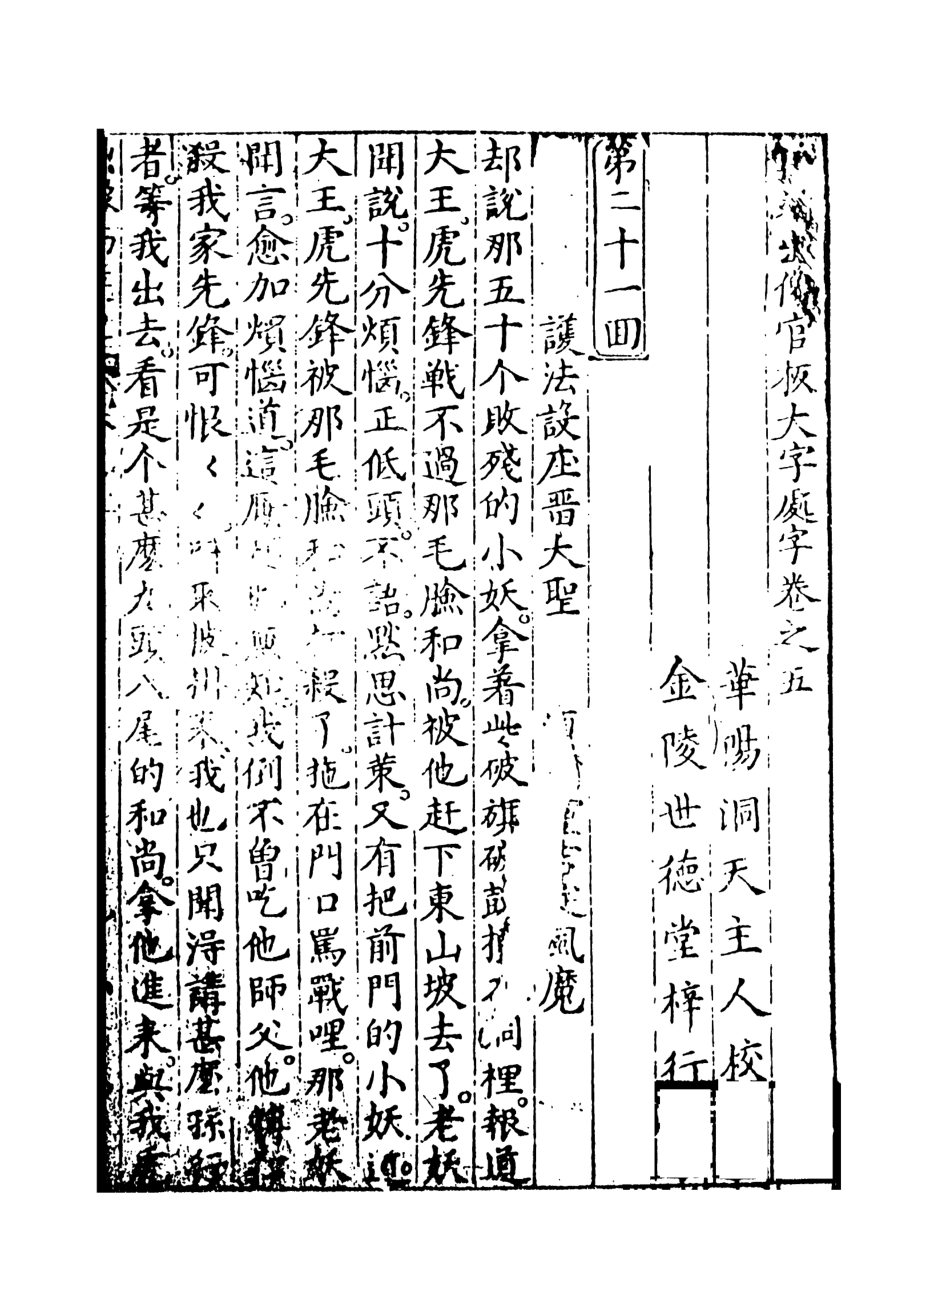 出像官板大字處字卷之五
華陽洞天主人校
金陵世德堂梓行
第二十一囬
護法設庄晋大聖 風魔
却說那五十个敗殘的小妖。拿着些破旗破皷 洞裡。報道
大王。虎先鋒戰不過那毛臉和尚。被他赶下東山坡去了。老妖
聞說。十分煩惱。正低頭。不語。黙思計策。又有把前門的小妖 道。
大王。虎先鋒被那毛臉和尚 殺了。拖在門口罵戰哩。那老妖
聞言。愈加煩惱道。這厮 無知。我倒不曽吃他師父。他轉
殺我家先鋒。可恨く く 取披掛來。我也只聞得講甚麽孫
者。等我出去。看是个甚麽九頭八尾的和尚。拿他進来。與我